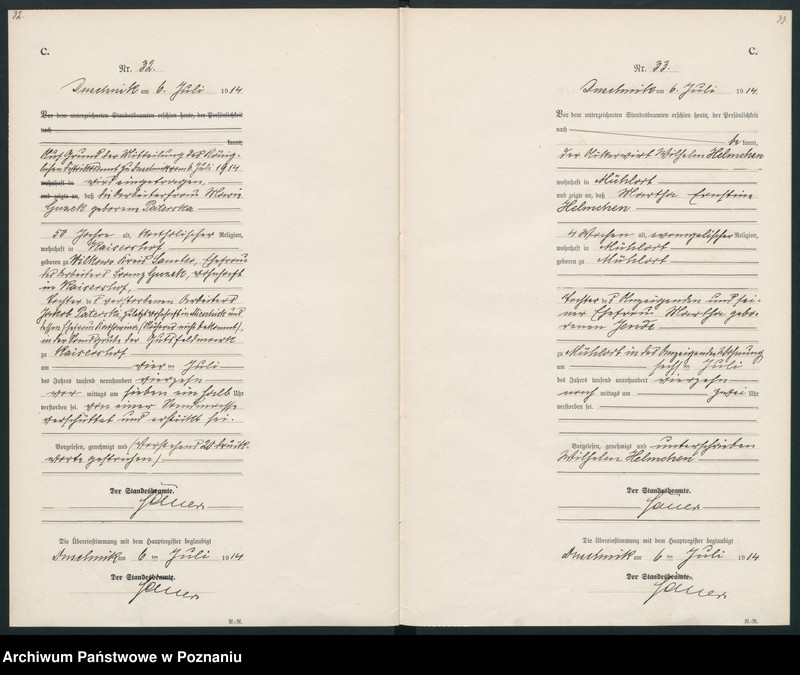 32.
C.
Nr. 32.
Duschnik am 6. Juli 1914
Vor dem unterzeichneten Standesbeamten erschien heute, der Persönlichkeit
nach
kannt,
Auf Grund der Mitteilung des König-
lichen Distriktsamts zu Duschnik vom 6. Juli 1914
wohnhaft in wird eingetragen,
und zeigte an, daß die Arbeiterfrau Marie
geborene Palerska
50 Jahre alt, katholischer Religion,
wohnhaft in Kaisershof
geboren zu Wilkowo Kreis Samter, Ehefrau
des Arbeiters Franz, wohnhaft
in Kaisershof,
Tochter des verstorbenen Arbeiters
Jakob Palerski, zuletzt wohnhaft in und
dessen Ehefrau Katharina, (Näheres nicht bekannt),
in der Sandgrube der Gutsfeldmark
zu Kaisershof
am vier ten Juli
des Jahres tausend neunhundert vierzehn
vor mittags um sieben ein halb Uhr
verstorben sei. von einer Sandmasse
verschüttet und erstickt sei.
Vorgelesen, genehmigt und (Vorstehend 20 Druck-
worte gestrichen)
Der Standesbeamte.
Die Übereinstimmung mit dem Hauptregister beglaubigt
Duschnik am 6 ten Juli 1914
Der Standesbeamte.
R.-R.
33.
C.
Nr. 33.
Duschnik am 6. Juli 1914.
Vor dem unterzeichneten Standesbeamten erschien heute, der Persönlichkeit
nach
be kannt,
der Ackerwirt Wilhelm Helmchen
wohnhaft in Mühlort
und zeigte an, daß Martha Ernstine
Helmchen
4 Wochen alt, evangelischer Religion,
wohnhaft in Mühlort
geboren zu Mühlort
Tochter des Anzeigenden und sei-
ner Ehefrau Martha gebo-
renen Jende
zu Mühlort in des Anzeigenden Wohnung
am sechs ten Juli
des Jahres tausend neunhundert vierzehn
nach mittags um zwei Uhr
verstorben sei.
Vorgelesen, genehmigt und unterschrieben
Wilhelm Helmchen
Der Standesbeamte.
Die Übereinstimmung mit dem Hauptregister beglaubigt
Duschnik am 6 ten Juli 1914
Der Standesbeamte.
R.-R.
Archiwum Państwowe w Poznaniu